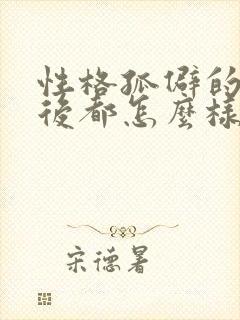 性格孤僻的
後都怎麼樣
宋德署